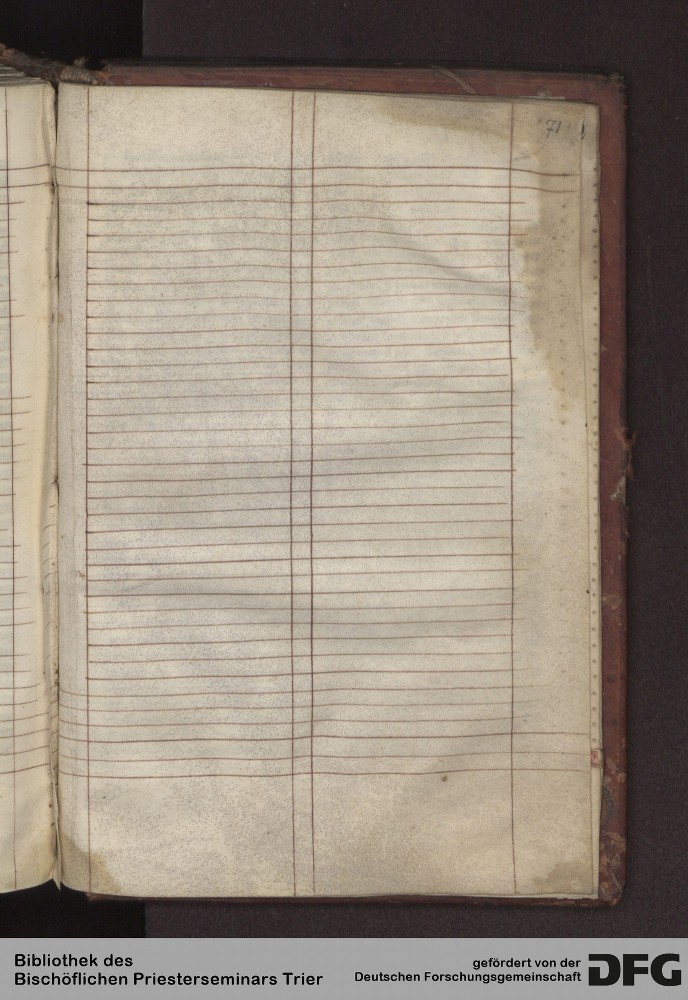 71
Bibliothek des
Bischöflichen Priesterseminars Trier
gefördert von der
Deutschen Forschungsgemeinschaft
DFG